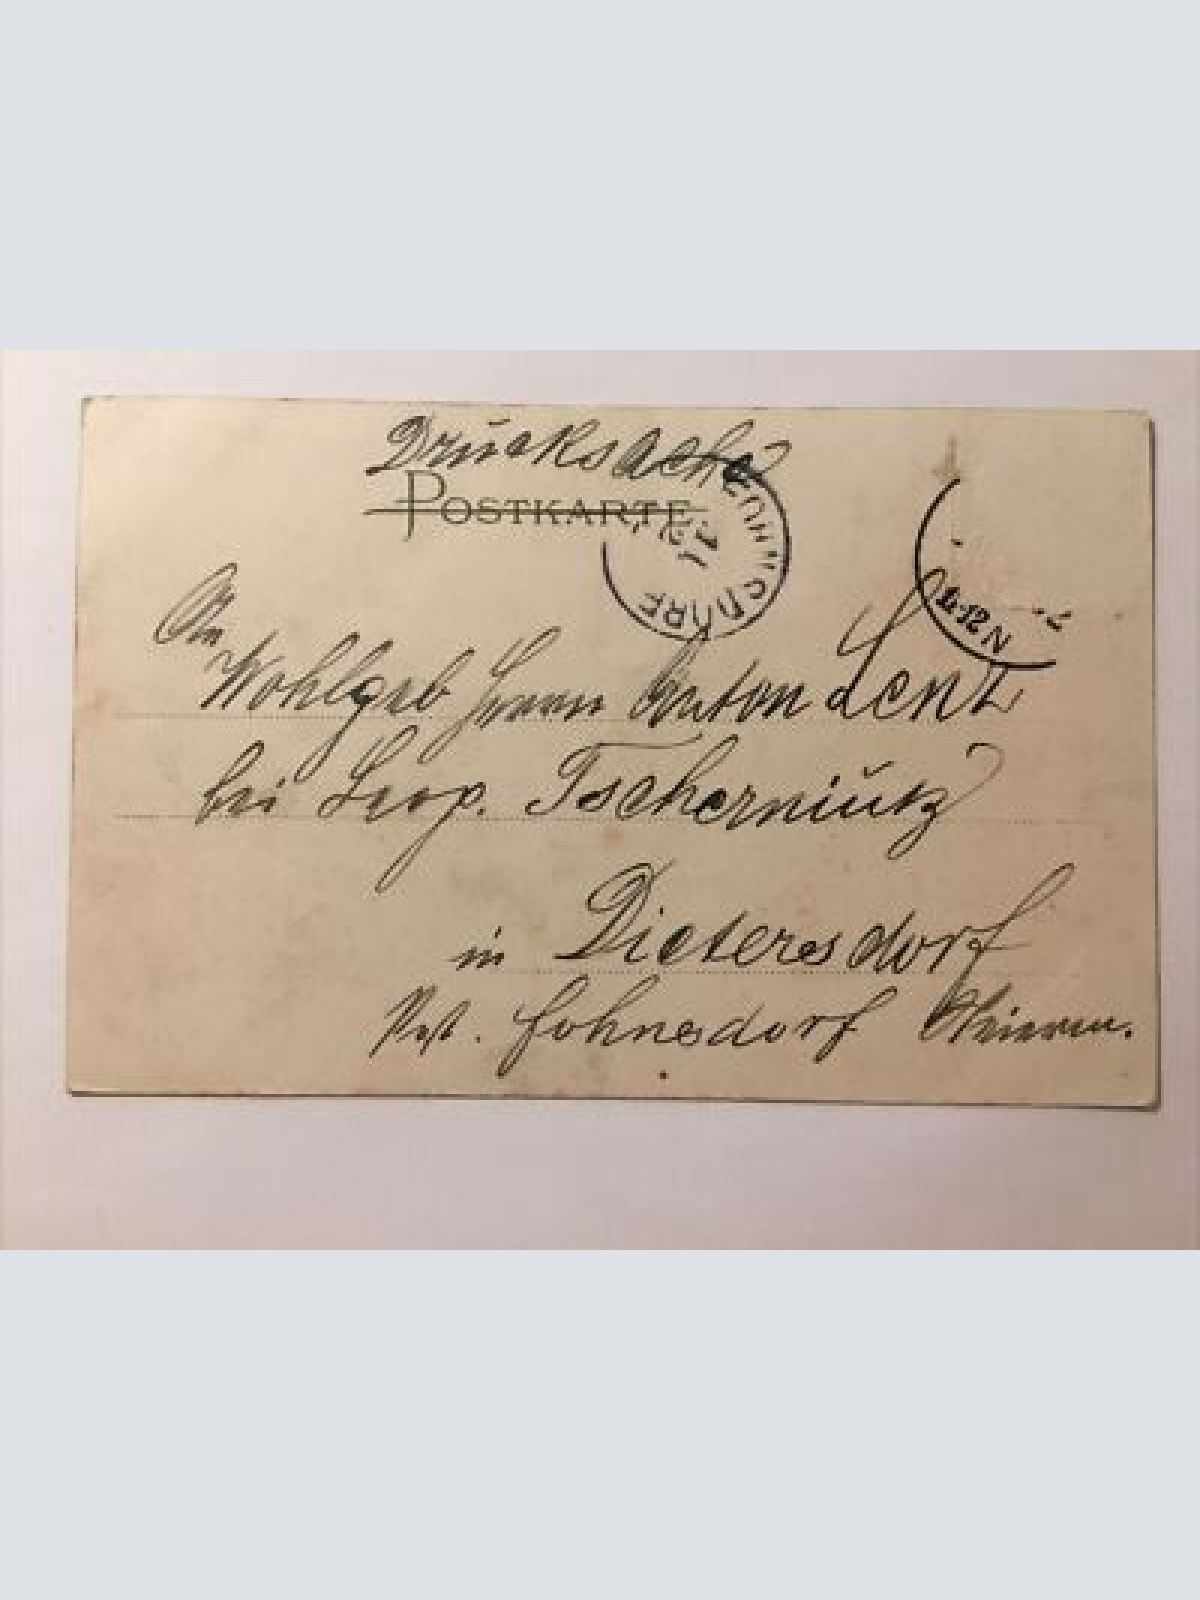 Drucksache
POSTKARTE
An
Wohlgeb Herrn Anton Lenz
bei Leop. Tscherniutz
in Dietersdorf
Post. Fohnsdorf Steierm.